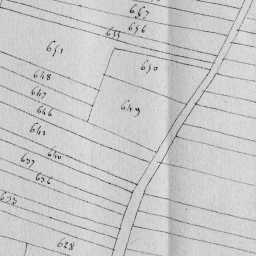 657
656
655
651
650
648
647
649
646
643
640
637
636
628